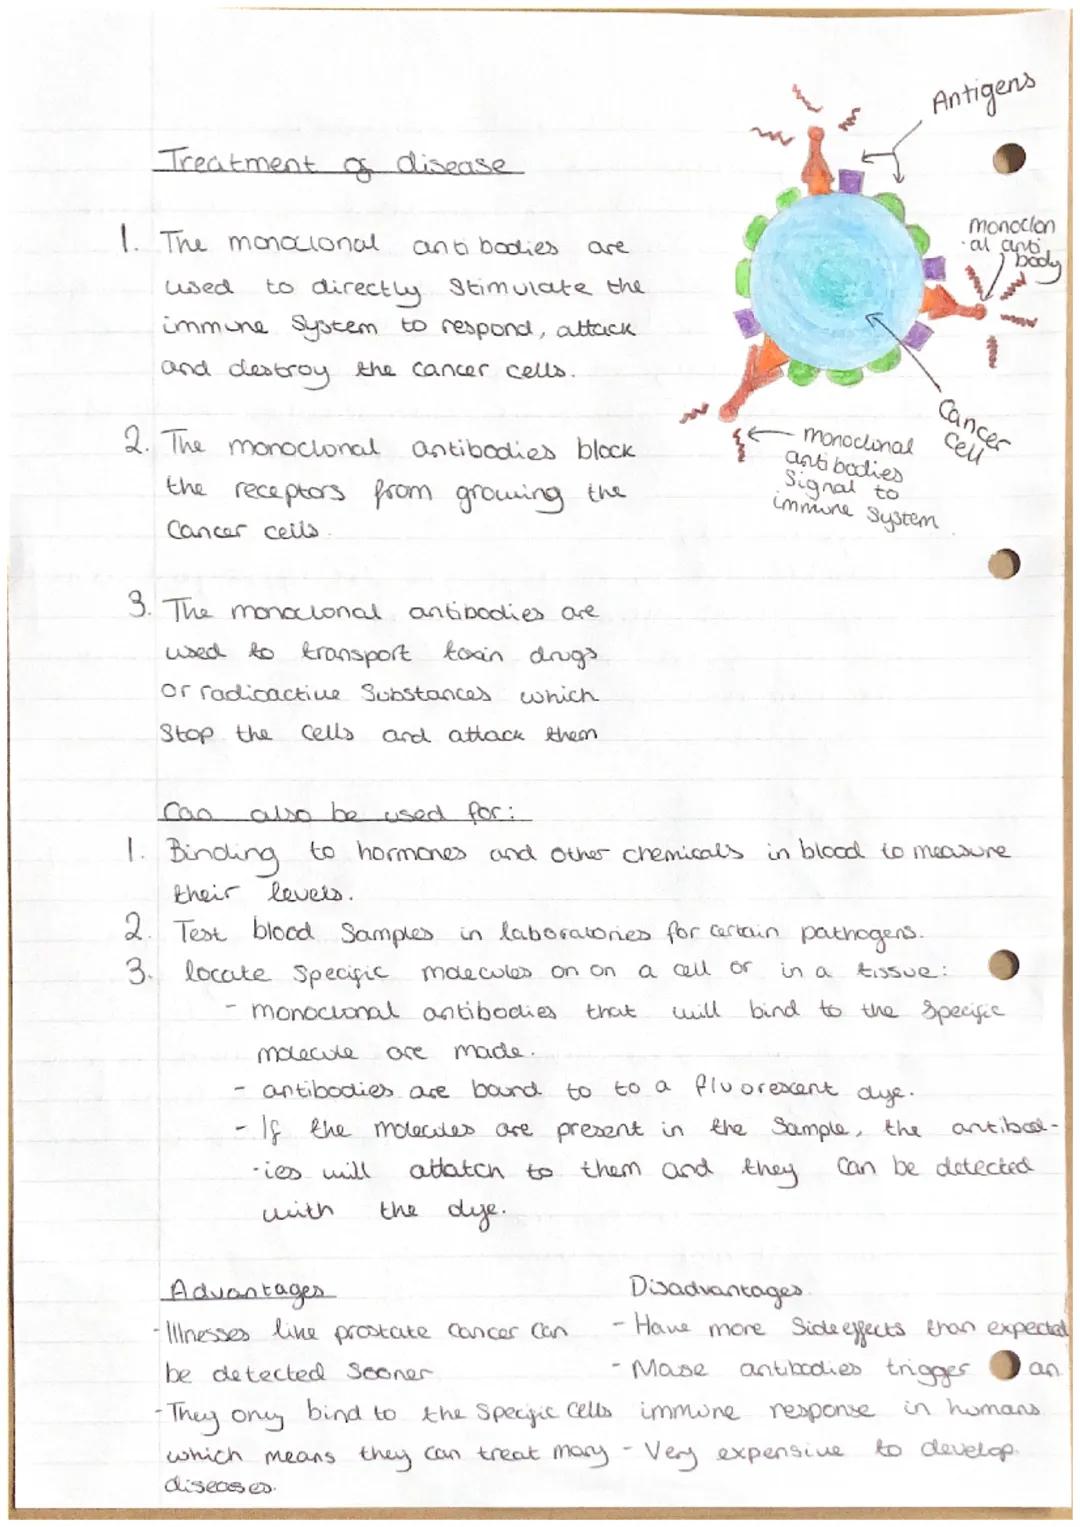 Antigens
Treatment of disease
monoclon
al anti
body
1. The monoclonal antibodies are
used to directly stimulate the
immune system to respond, attack
and destroy the cancer cells.
Cancer
cell
monoclonal
antibodies
signal to
immune system
2. The monoclonal antibodies block
the receptors from growing the
cancer cells.
3. The monoclonal antibodies are
used to transport toxin drugs
or radioactive substances which
stop the cells and attack them
Can also be used for:
1. Binding to hormones and other chemicals in blood to measure
their levels.
2. Test blood samples in laboratories for certain pathogens.
3. locate specific molecules on on a cell or in a tissue:
- monoclonal antibodies that will bind to the specific
molecule are made.
- antibodies are bound to to a fluorescent dye.
- If the molecules are present in the sample, the antibod-
-ies will attatch to them and they can be detected
with the dye.
Advantages
- Illnesses like prostate cancer can
be detected sooner
- They only bind to the specific cells
which means they can treat many
diseases.
Disadvantages
- Have more side effects than expected
- Mase antibodies trigger an
immune response in humans
- Very expensive to develop.